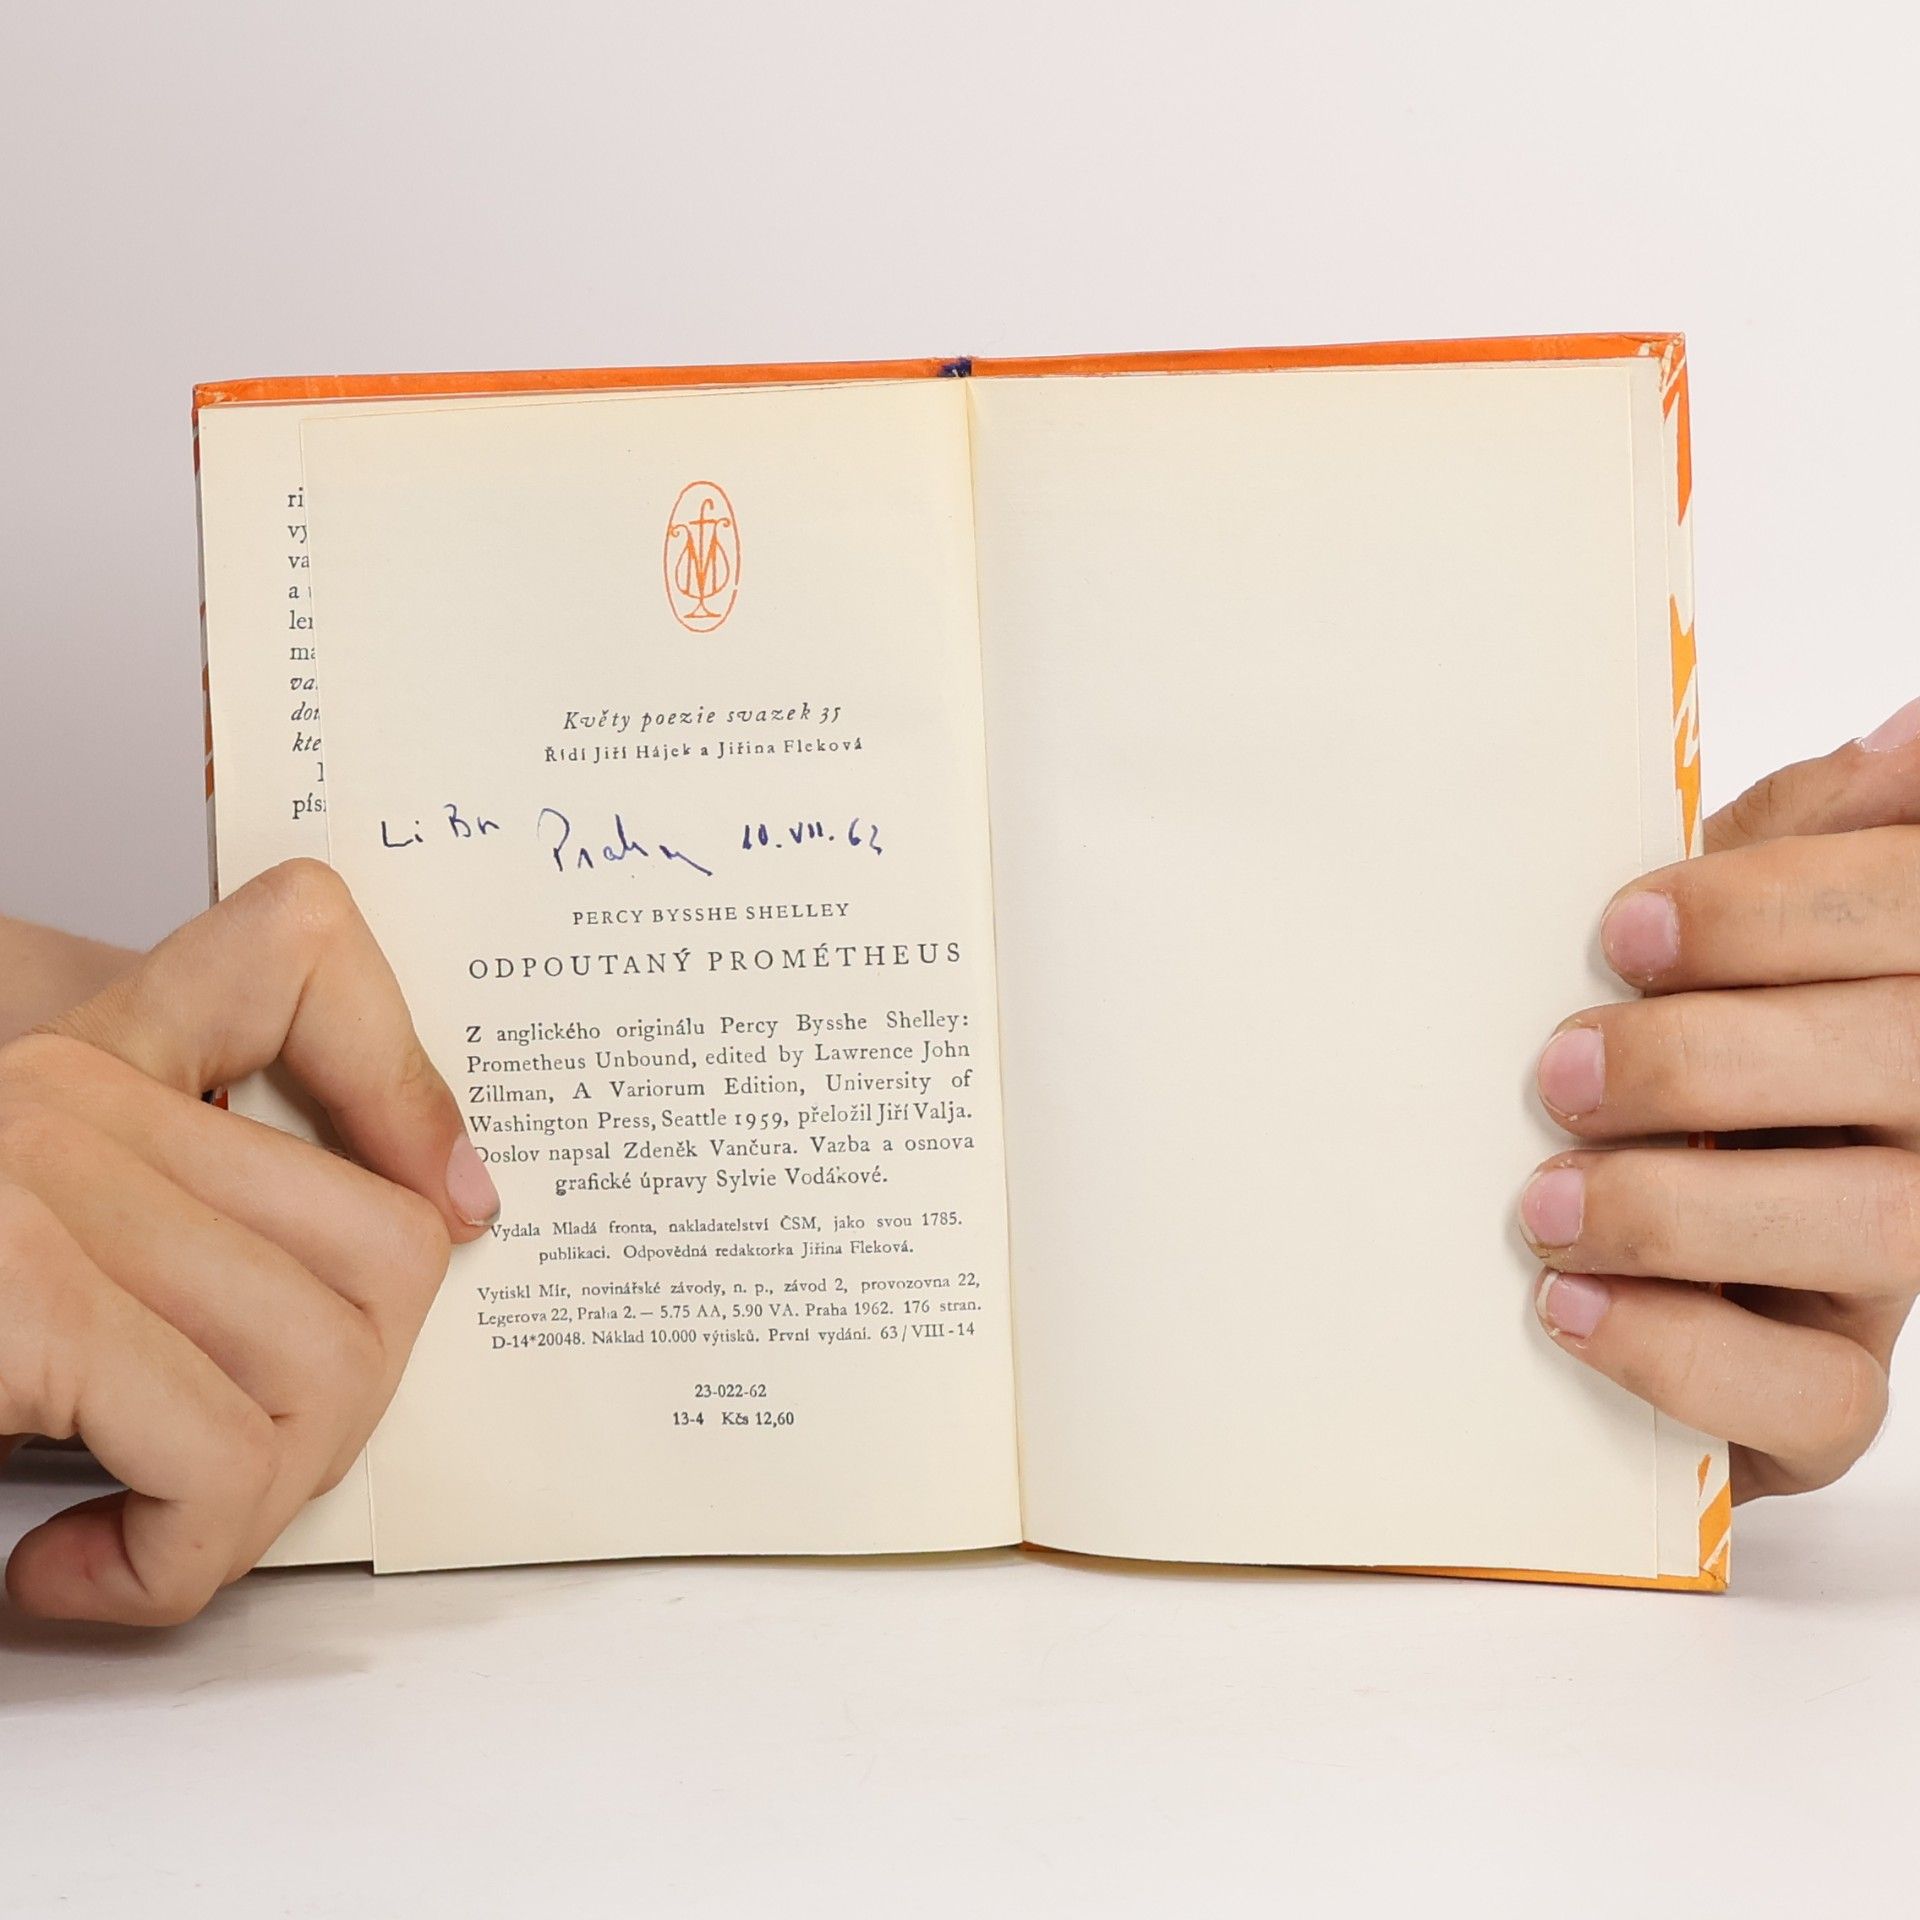 ri
vy
va
a
ler
ma
va
dou
kte
písi
Květy poezie svazek 35
Řídí Jiří Hájek a Jiřina Fleková
Li Bn Praha 10.VII.62
PERCY BYSSHE SHELLEY
ODPOUTANÝ PROMÉTHEUS
Z anglického originálu Percy Bysshe Shelley:
Prometheus Unbound, edited by Lawrence John
Zillman, A Variorum Edition, University of
Washington Press, Seattle 1959, přeložil Jiří Valja.
Doslov napsal Zdeněk Vančura. Vazba a osnova
grafické úpravy Sylvie Vodákové.
Vydala Mladá fronta, nakladatelství ČSM, jako svou 1785.
publikaci. Odpovědná redaktorka Jiřina Fleková.
Vytiskl Mír, novinářské závody, n. p., závod 2, provozovna 22,
Legerova 22, Praha 2. — 5.75 AA, 5.90 VA. Praha 1962. 176 stran.
D-14*20048. Náklad 10.000 výtisků. První vydání. 63/VIII-14
23-022-62
13-4 Kčs 12,60